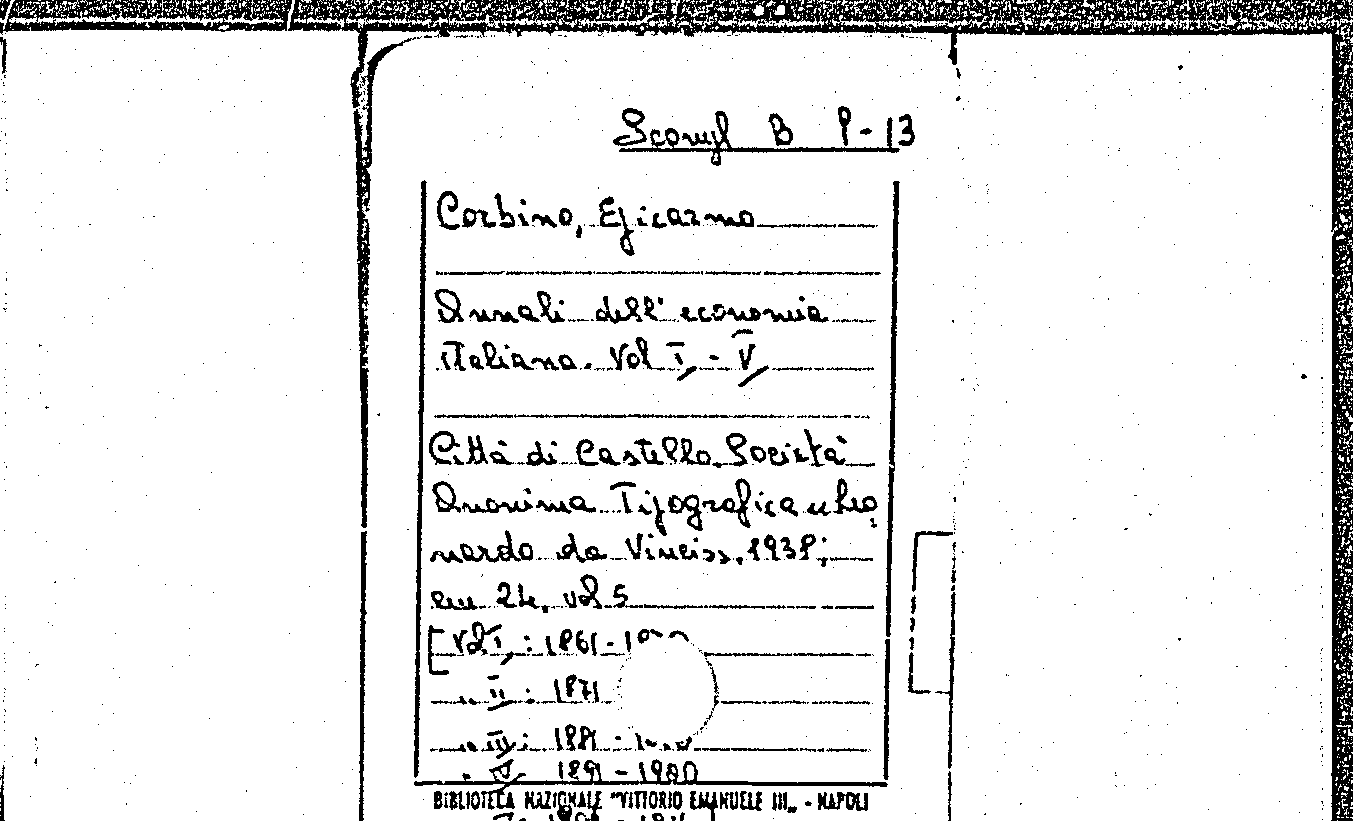 B P-13
Corbino, Epicarmo
Annali dell'economia
italiana. Vol I, - V,
Città di Castello, Società
Anonima Tipografica "Leo
nardo da Vinci", 1938;
cm 24, vol 5
[Vol I, : 1861-
" II : 1871
" III : 1881 -
" IV 1891 - 1900
BIBLIOTECA NAZIONALE "VITTORIO EMANUELE III" - NAPOLI